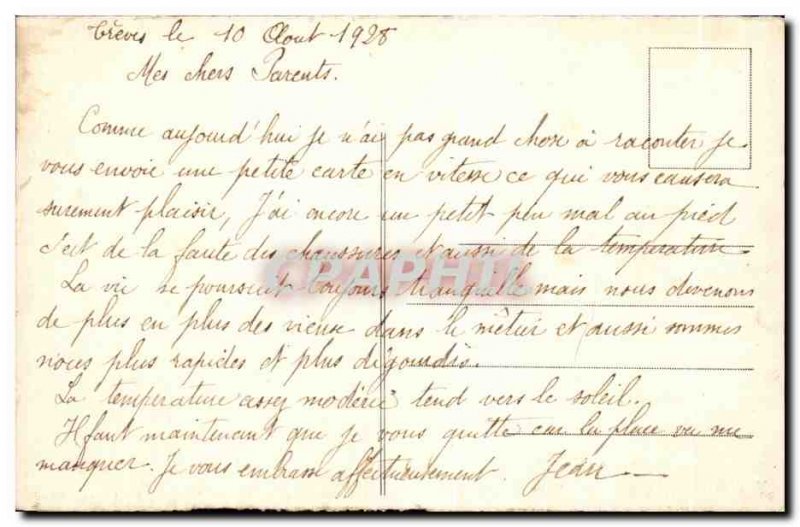 Trèves le 10 Aout 1928
Mes chers Parents.
Comme aujourd'hui je n'ai pas grand chose à raconter je
vous envoie une petite carte en vitesse ce qui vous causera
surement plaisir, J'ai encore un petit peu mal au pied
c'est de la faute des chaussures et aussi de la temperature.
La vie se poursuit toujours tranquille mais nous devenons
de plus en plus des vieux dans le métier et aussi sommes
nous plus rapides et plus dégourdis.
La temperature assez modérée tend vers le soleil.
Il faut maintenant que je vous quitte car la place va me
manquer. Je vous embrasse affectueusement. Jean